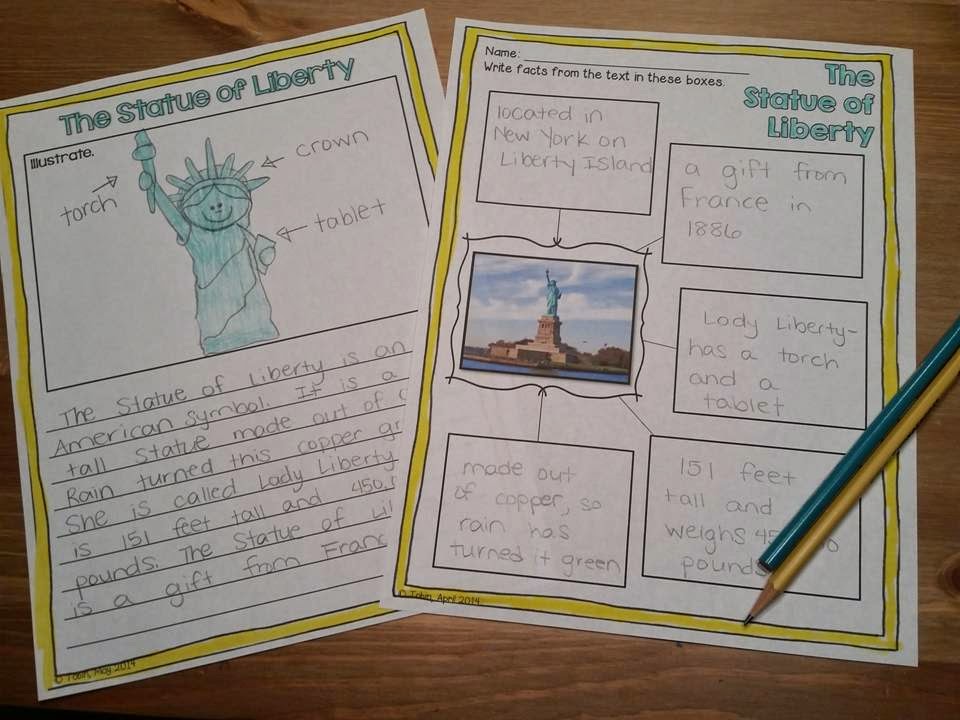 The Statue of Liberty
Illustrate.
crown
torch
tablet
The Statue of Liberty is an
American symbol. It is a
tall statue made out of
Rain turned this copper
She is called Lady Liberty
is 151 feet tall and 450,
pounds. The Statue of
is a gift from
© Tobin, May 2014
Name:
Write facts from the text in these boxes.
The
Statue of
Liberty
located in
New York on
Liberty Island
a gift from
France in
1886
Lady Liberty-
has a torch
and a
tablet
made out
of copper, so
rain has
turned it green
151 feet
tall and
weighs
pounds
© Tobin, April 2014